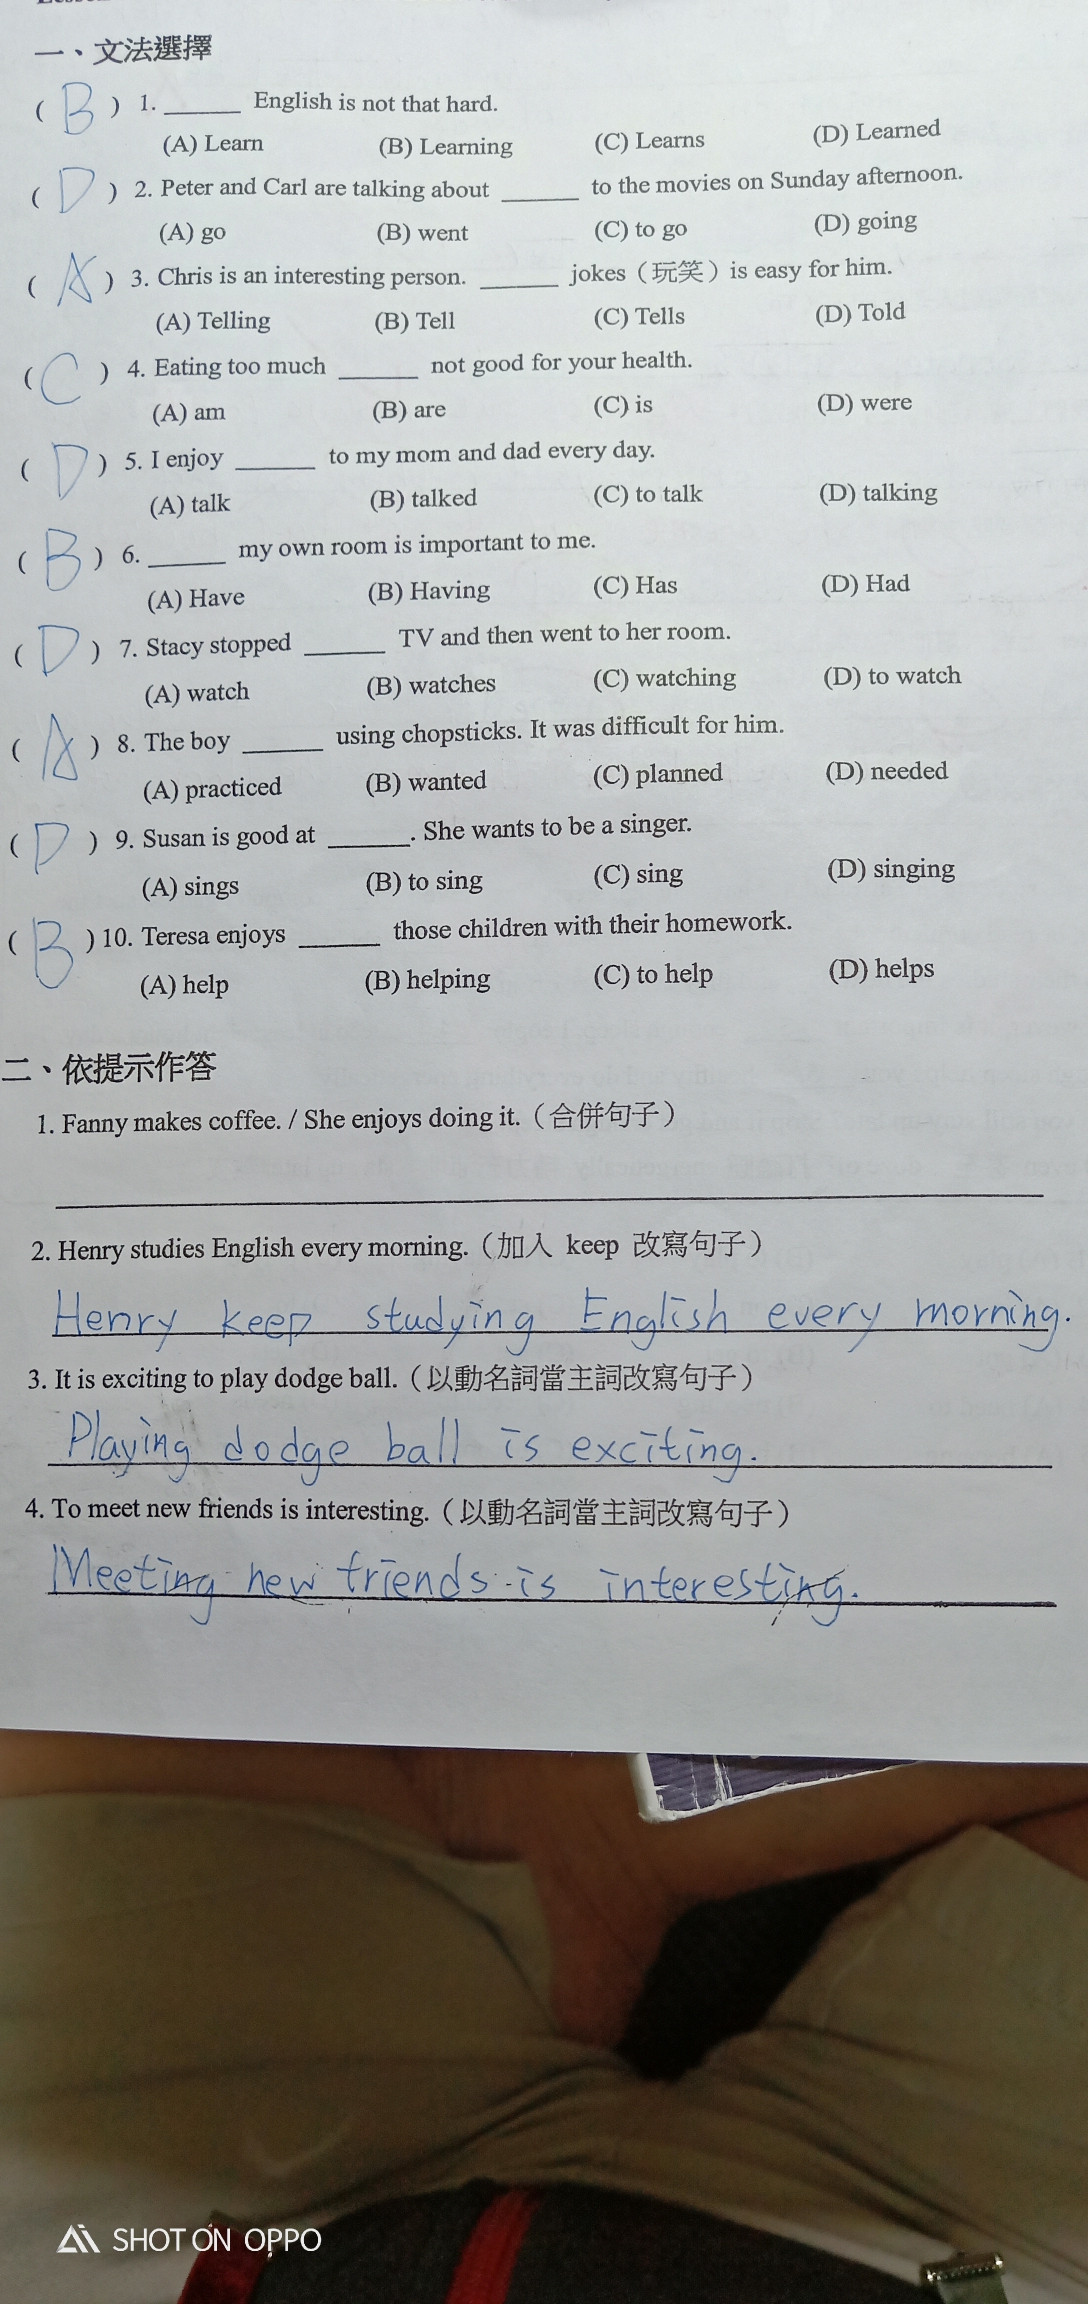 一、文法選擇
( B ) 1. ______ English is not that hard.
(A) Learn (B) Learning (C) Learns (D) Learned
( D ) 2. Peter and Carl are talking about ______ to the movies on Sunday afternoon.
(A) go (B) went (C) to go (D) going
( A ) 3. Chris is an interesting person. ______ jokes（玩笑）is easy for him.
(A) Telling (B) Tell (C) Tells (D) Told
( C ) 4. Eating too much ______ not good for your health.
(A) am (B) are (C) is (D) were
( D ) 5. I enjoy ______ to my mom and dad every day.
(A) talk (B) talked (C) to talk (D) talking
( B ) 6. ______ my own room is important to me.
(A) Have (B) Having (C) Has (D) Had
( D ) 7. Stacy stopped ______ TV and then went to her room.
(A) watch (B) watches (C) watching (D) to watch
( A ) 8. The boy ______ using chopsticks. It was difficult for him.
(A) practiced (B) wanted (C) planned (D) needed
( D ) 9. Susan is good at ______. She wants to be a singer.
(A) sings (B) to sing (C) sing (D) singing
( B ) 10. Teresa enjoys ______ those children with their homework.
(A) help (B) helping (C) to help (D) helps
二、依提示作答
1. Fanny makes coffee. / She enjoys doing it.（合併句子）
2. Henry studies English every morning.（加入 keep 改寫句子）
Henry keep studying English every morning.
3. It is exciting to play dodge ball.（以動名詞當主詞改寫句子）
Playing dodge ball is exciting.
4. To meet new friends is interesting.（以動名詞當主詞改寫句子）
Meeting new friends is interesting.
SHOT ON OPPO